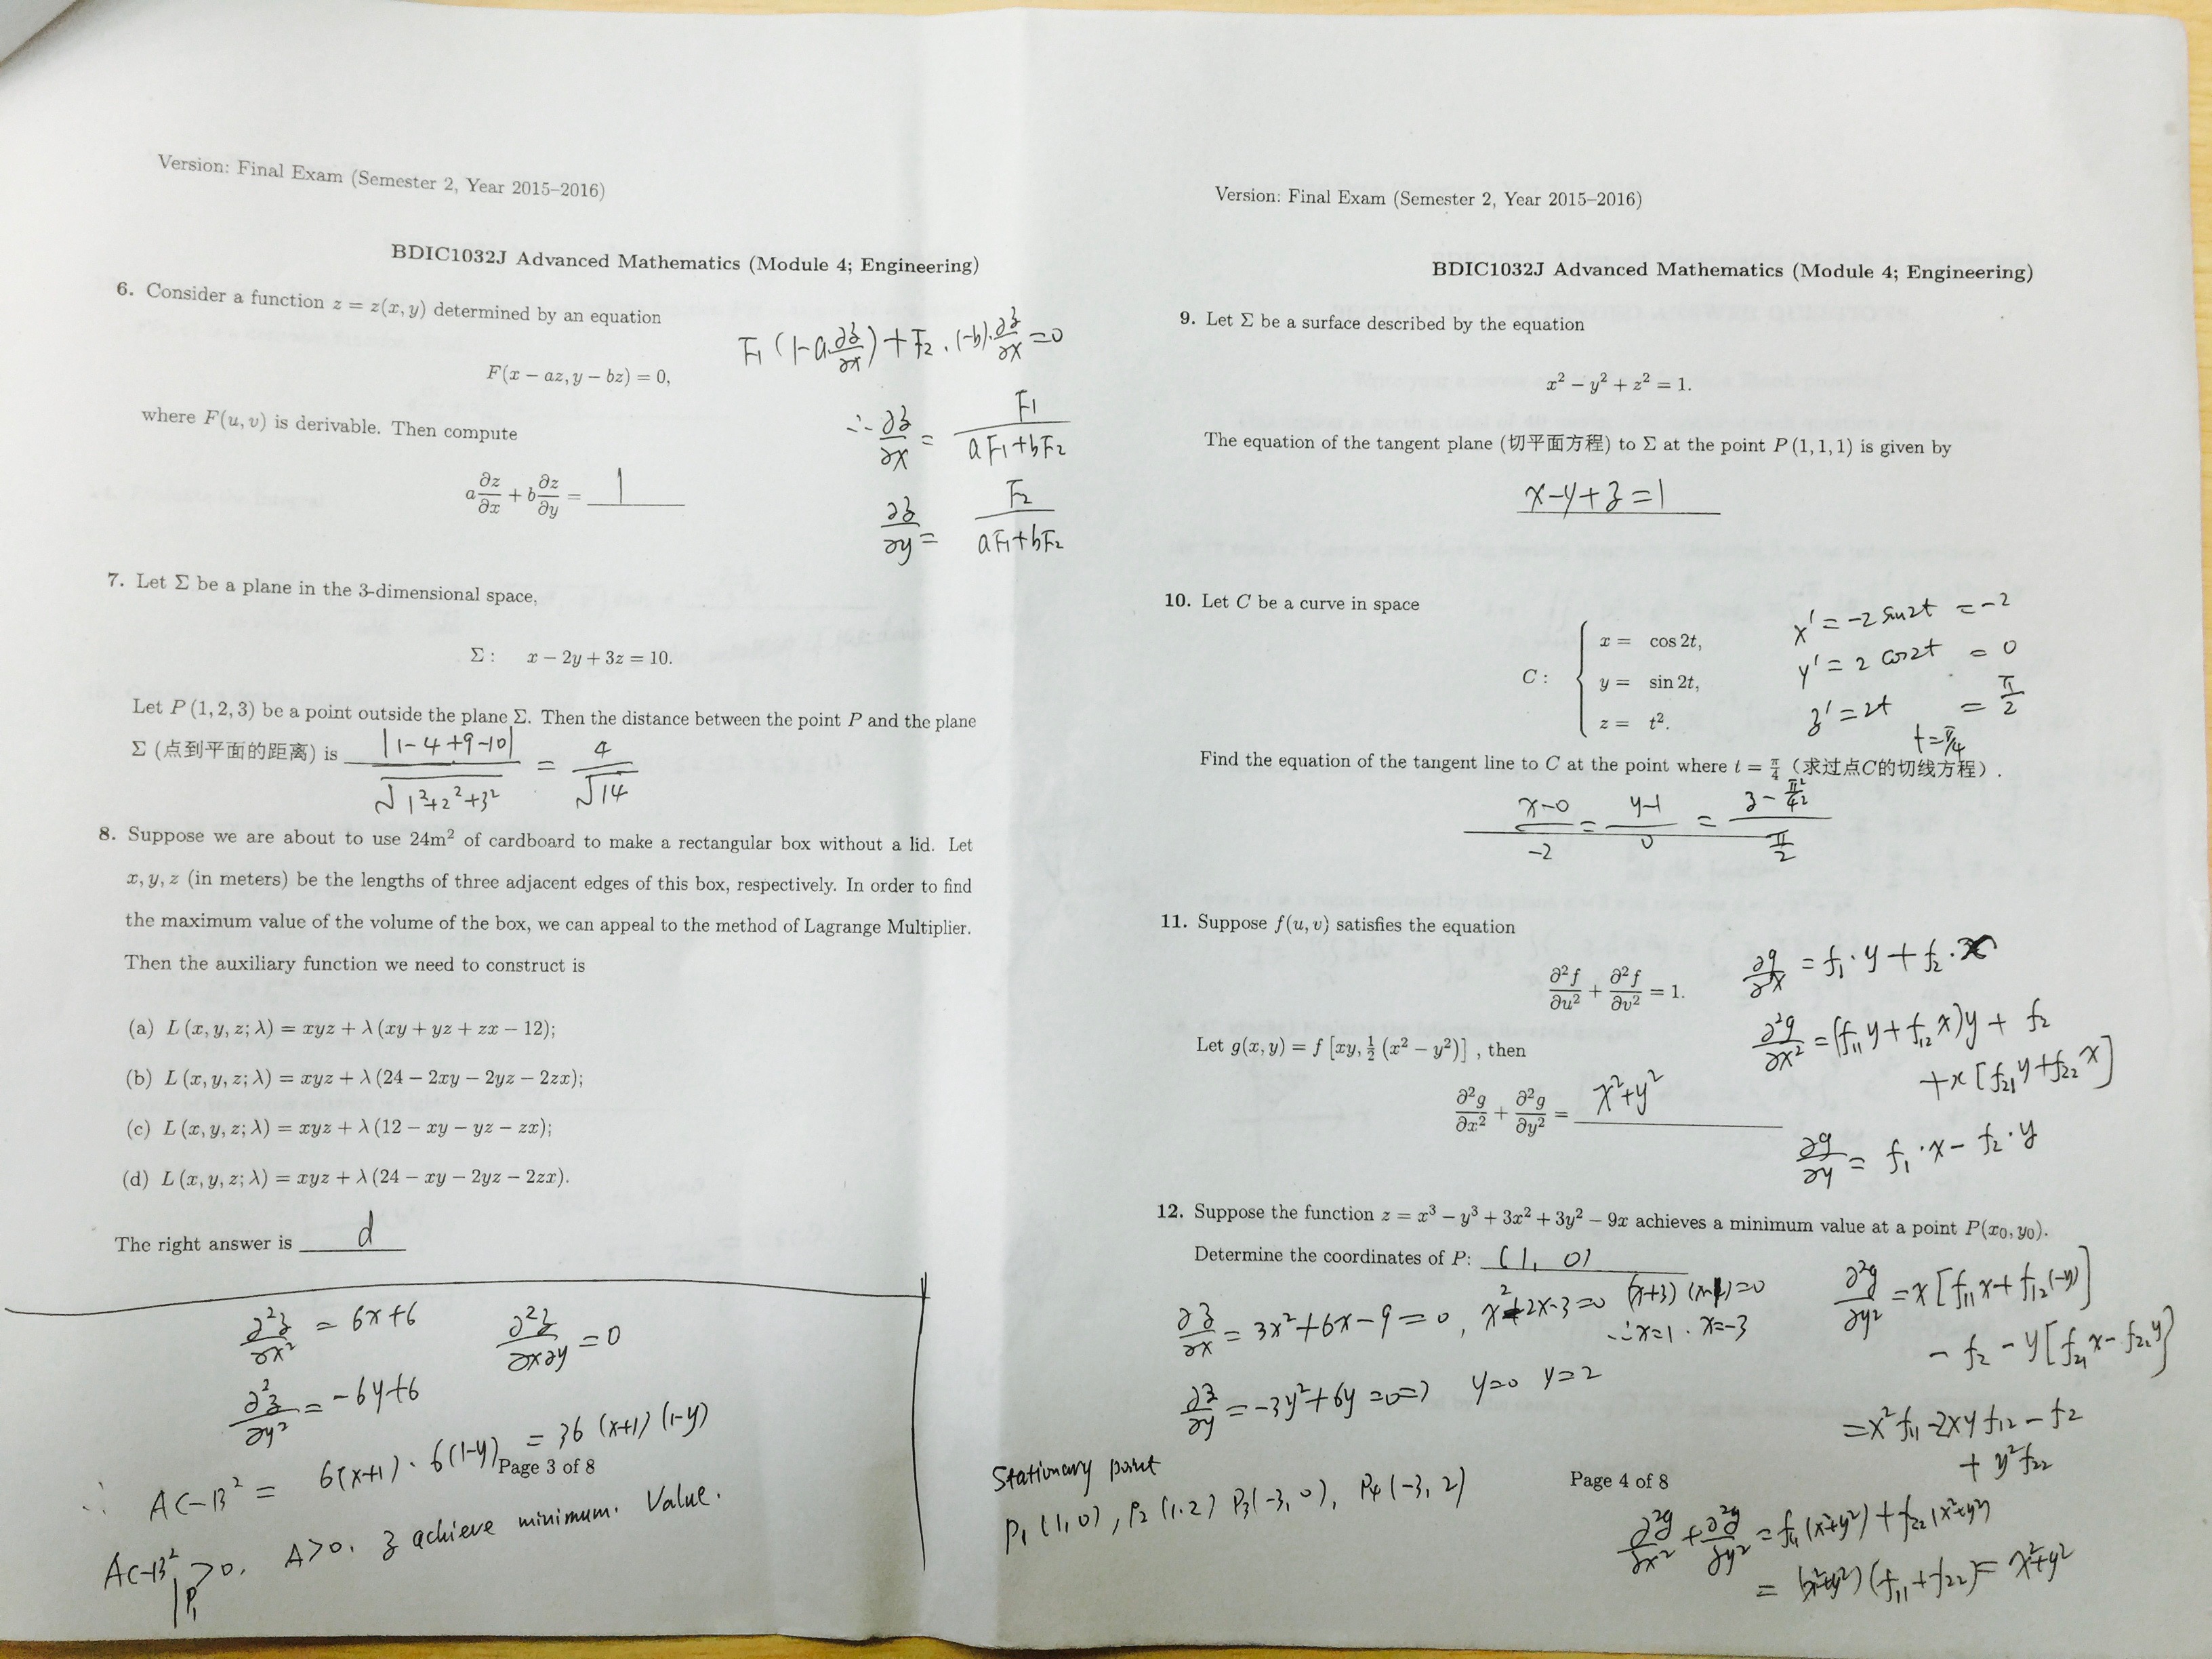 Version: Final Exam (Semester 2, Year 2015–2016)
BDIC1032J Advanced Mathematics (Module 4; Engineering)
6. Consider a function z = z(x, y) determined by an equation
F(x − az, y − bz) = 0,
where F(u, v) is derivable. Then compute
a ∂z/∂x + b ∂z/∂y = 1
F₁(1−a·∂z/∂x)+F₂·(−b)·∂z/∂x=0
∴ ∂z/∂x = F₁/(aF₁+bF₂)
∂z/∂y = F₂/(aF₁+bF₂)
7. Let Σ be a plane in the 3-dimensional space,
Σ : x − 2y + 3z = 10.
Let P (1, 2, 3) be a point outside the plane Σ. Then the distance between the point P and the plane
Σ (点到平面的距离) is |1−4+9−10|/√(1²+2²+3²) = 4/√14
8. Suppose we are about to use 24m² of cardboard to make a rectangular box without a lid. Let
x, y, z (in meters) be the lengths of three adjacent edges of this box, respectively. In order to find
the maximum value of the volume of the box, we can appeal to the method of Lagrange Multiplier.
Then the auxiliary function we need to construct is
(a) L (x, y, z; λ) = xyz + λ (xy + yz + zx − 12);
(b) L (x, y, z; λ) = xyz + λ (24 − 2xy − 2yz − 2zx);
(c) L (x, y, z; λ) = xyz + λ (12 − xy − yz − zx);
(d) L (x, y, z; λ) = xyz + λ (24 − xy − 2yz − 2zx).
The right answer is d
∂²z/∂x² = 6x+6 ∂²z/∂x∂y = 0
∂²z/∂y² = −6y+6
∴ AC−B² = 6(x+1)·6(1−y) = 36 (x+1)(1−y)
Page 3 of 8
AC−B²|P₁ >0, A>0. z achieve minimum. Value.
Version: Final Exam (Semester 2, Year 2015–2016)
BDIC1032J Advanced Mathematics (Module 4; Engineering)
9. Let Σ be a surface described by the equation
x² − y² + z² = 1.
The equation of the tangent plane (切平面方程) to Σ at the point P (1, 1, 1) is given by
x−y+z=1
10. Let C be a curve in space
C : x = cos 2t,
y = sin 2t,
z = t².
x' = −2 sin2t = −2
y' = 2 cos2t = 0
z' = 2t = π/2
t=π/4
Find the equation of the tangent line to C at the point where t = π/4 (求过点C的切线方程) .
(x−0)/−2 = (y−1)/0 = (z−π²/4²)/(π/2)
11. Suppose f(u, v) satisfies the equation
∂²f/∂u² + ∂²f/∂v² = 1.
Let g(x, y) = f [xy, ½ (x² − y²)] , then
∂²g/∂x² + ∂²g/∂y² = x²+y²
∂g/∂x = f₁·y + f₂·x
∂²g/∂x² = (f₁₁y+f₁₂x)y + f₂
+x[f₂₁y+f₂₂x]
∂g/∂y = f₁·x − f₂·y
12. Suppose the function z = x³ − y³ + 3x² + 3y² − 9x achieves a minimum value at a point P(x₀, y₀).
Determine the coordinates of P: (1, 0)
∂z/∂x = 3x²+6x−9=0, x²+2x−3=0 (x+3)(x−1)=0
∴x=1. x=−3
∂z/∂y = −3y²+6y=0⇒ y=0 y=2
Stationary point
P₁(1,0), P₂(1.2) P₃(−3,0), P₄(−3,2)
∂²g/∂y² = x[f₁₁x+f₁₂(−y)]
− f₂ − y[f₂₁x−f₂₂y]
=x²f₁₁−2xyf₁₂−f₂
+y²f₂₂
Page 4 of 8
∂²g/∂x² + ∂²g/∂y² = f₁₁(x²+y²)+f₂₂(x²+y²)
= (x²+y²)(f₁₁+f₂₂)= x²+y²